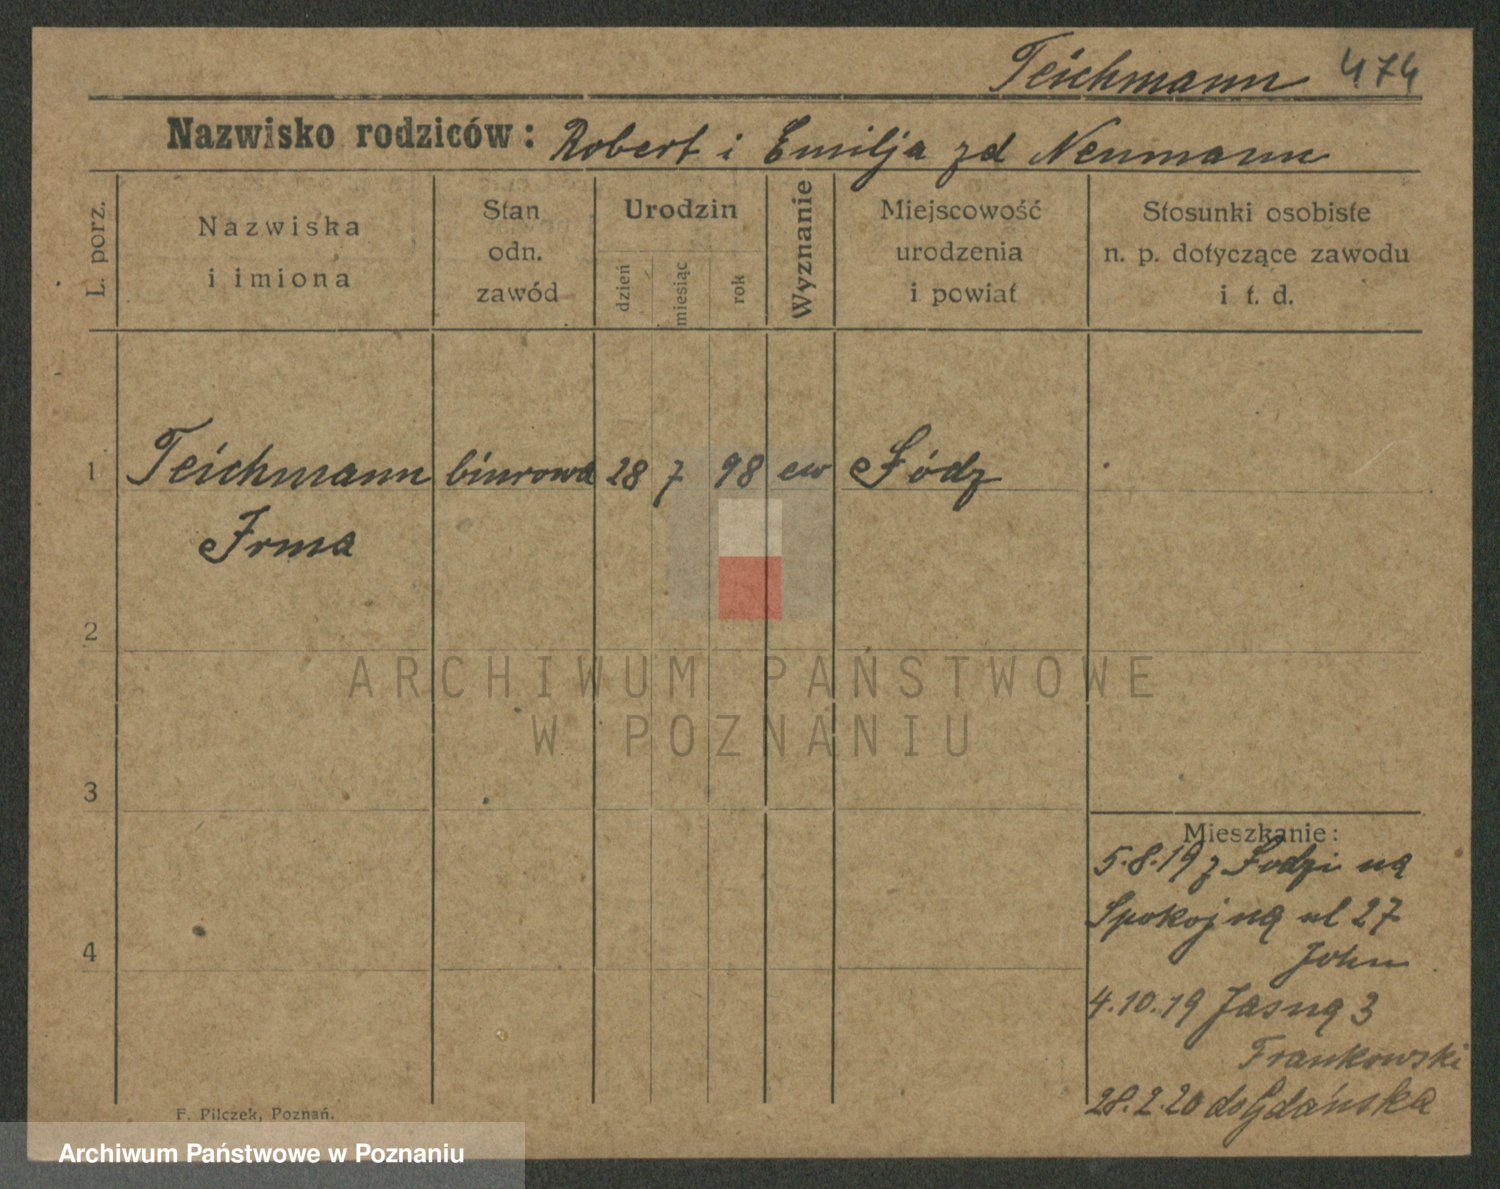 Teichmann 474
Nazwisko rodziców: Robert i Emilja zd Neumann
L. porz.
Nazwiska
i imiona
Stan
odn.
zawód
Urodzin
dzień
miesiąc
rok
Wyznanie
Miejscowość
urodzenia
i powiat
Stosunki osobiste
n. p. dotyczące zawodu
i t. d.
1 Teichmann biurowa 28 7 98 ew Łódz
Irma
2
3
4
Mieszkanie:
5.8.19 z Łodzi na
Spokojną ul 27
John
4.10.19 Jasną 3
Frankowski
28.2.20 do Gdańska
F. Pilczek, Poznań.
ARCHIWUM PAŃSTWOWE
W POZNANIU
Archiwum Państwowe w Poznaniu